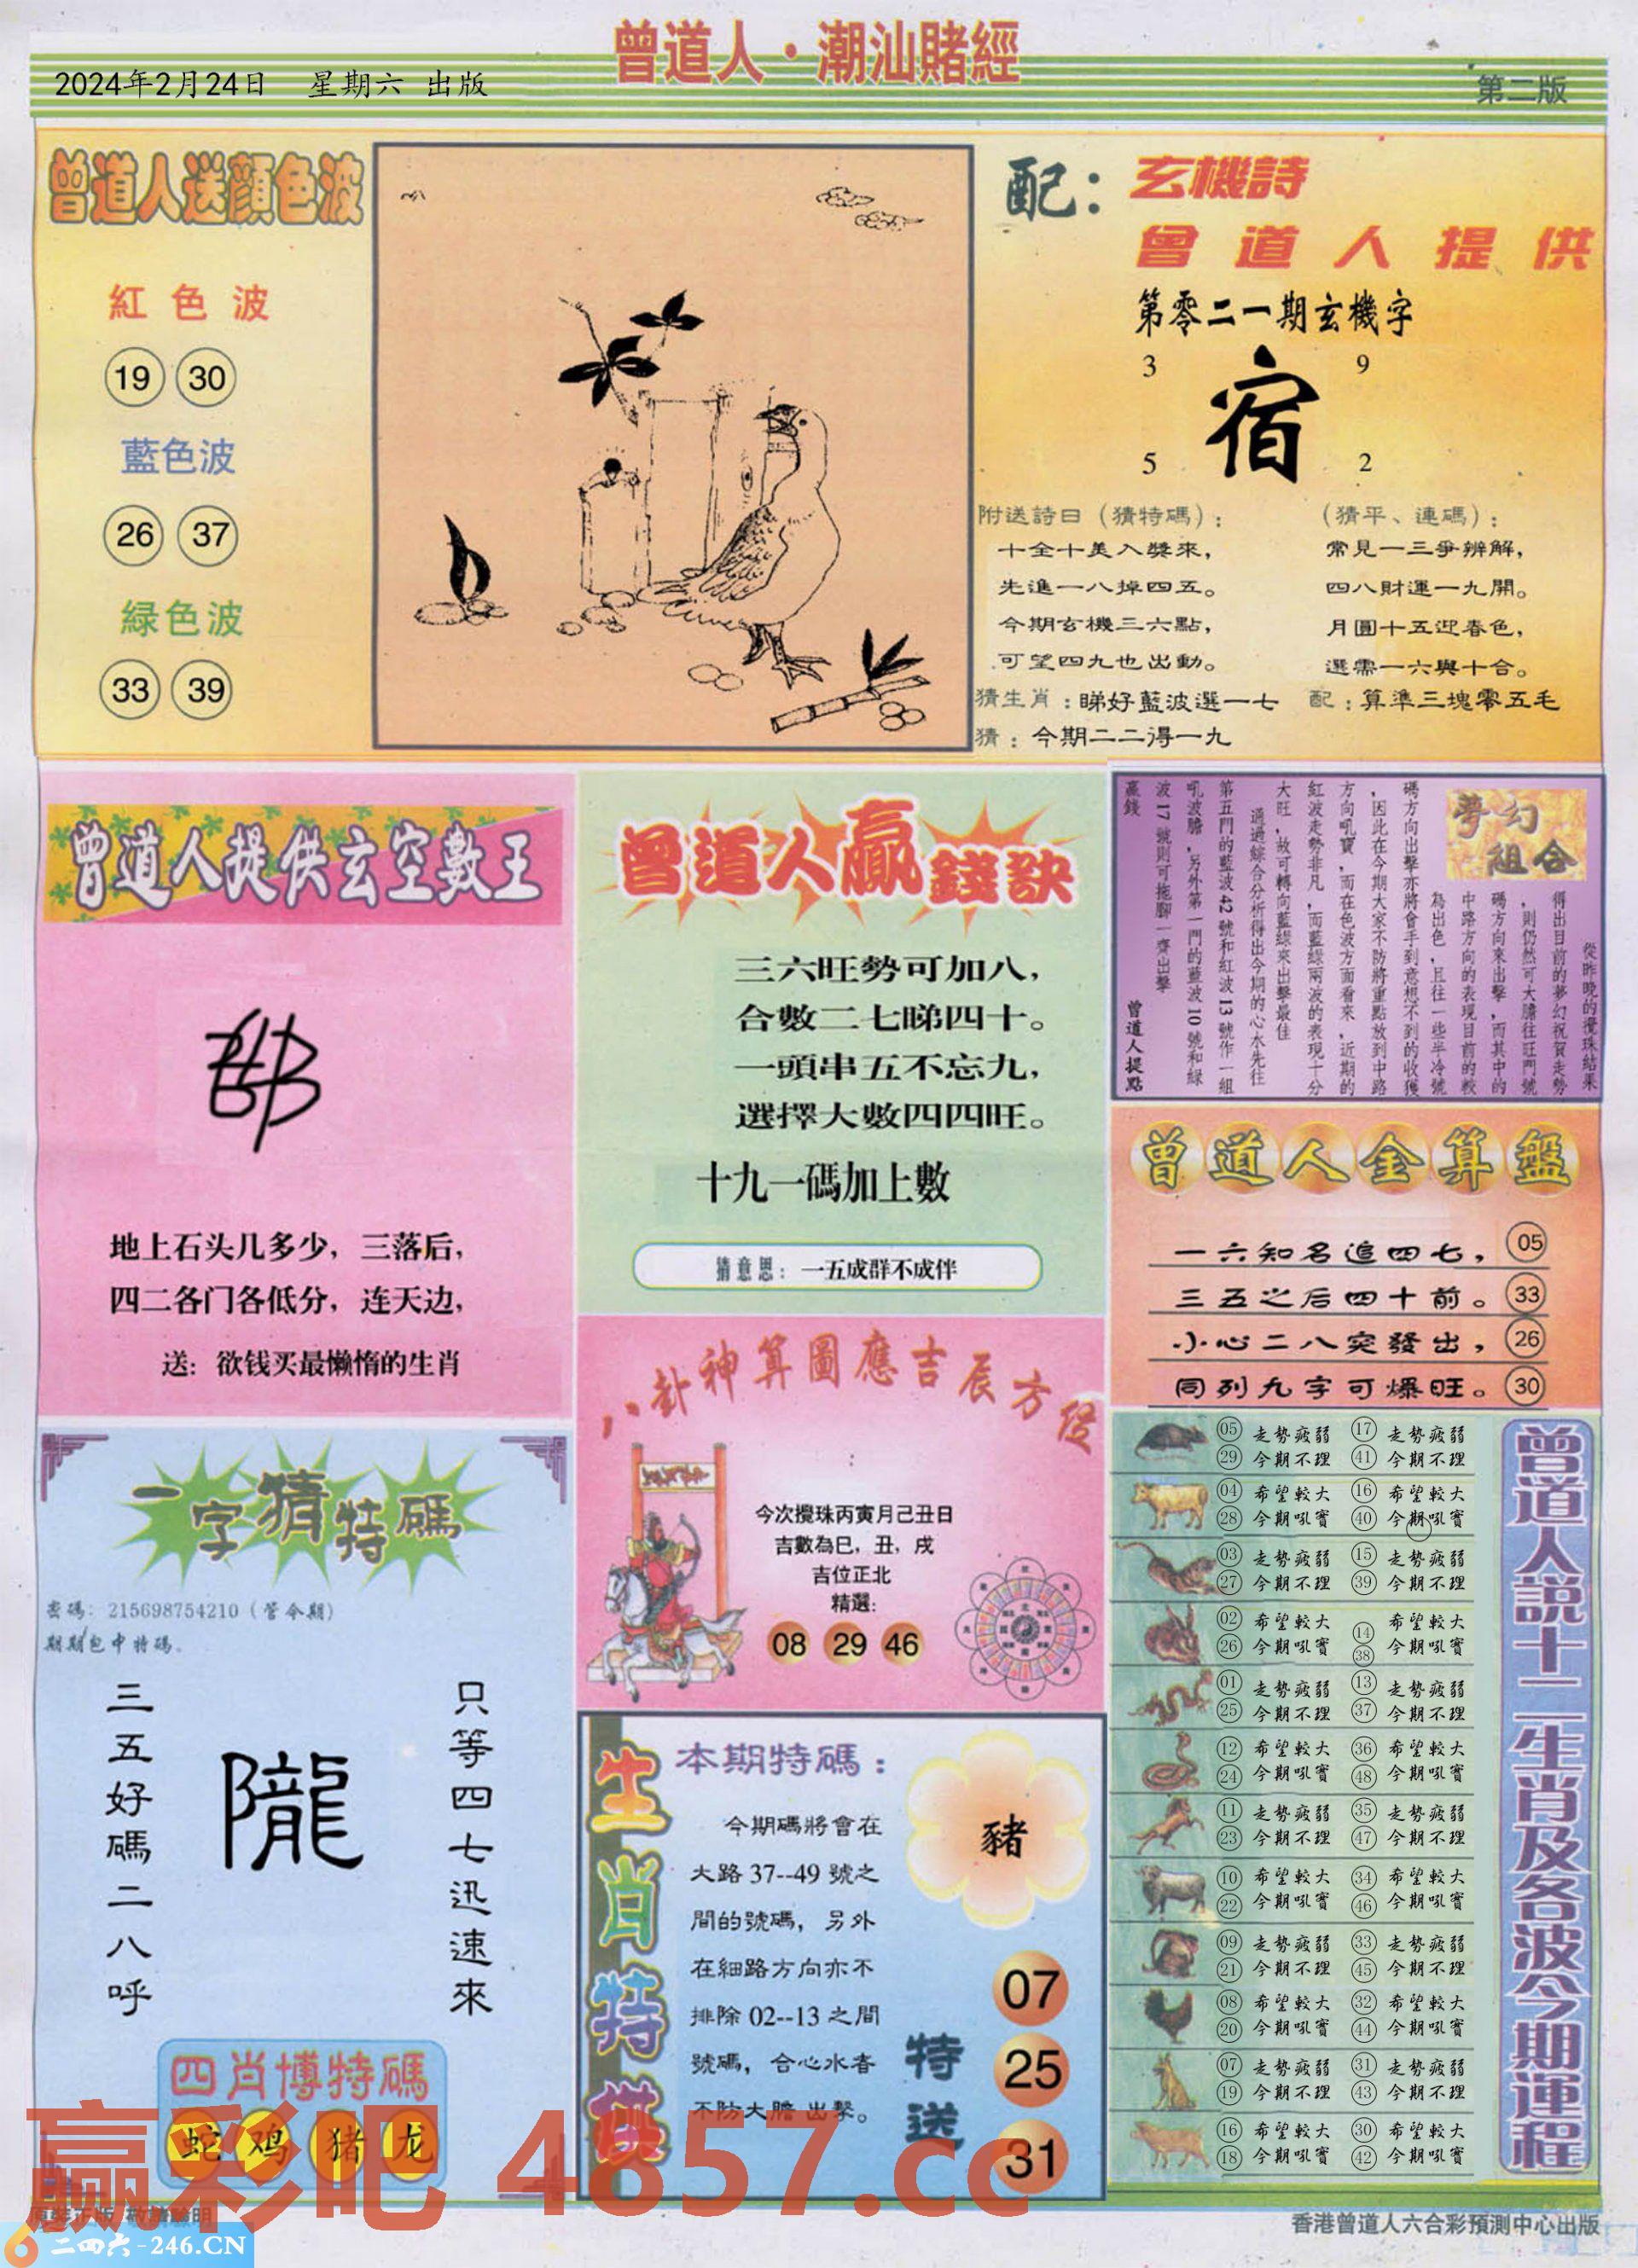 曾道人·潮汕賭經
2024年2月24日 星期六 出版
第二版
曾道人送顏色波
紅色波
19 30
藍色波
26 37
緑色波
33 39
配：
玄機詩
曾道人提供
第零二一期玄機字
3 9
宿
5 2
附送詩曰（猜特碼）：
十全十美入獎來，
先進一八掉四五。
今期玄機三六點，
可望四九也出動。
（猜平、連碼）：
常見一三爭辨解，
四八財運一九開。
月圓十五迎春色，
選需一六與十合。
猜生肖：睇好藍波選一七
配：算準三塊零五毛
猜：今期二二得一九
曾道人提供玄空數王
地上石头几多少，三落后，
四二各门各低分，连天边，
送：欲钱买最懒惰的生肖
曾道人贏錢訣
三六旺勢可加八，
合數二七睇四十。
一頭串五不忘九，
選擇大數四四旺。
十九一碼加上數
猜意思：一五成群不成伴
夢幻組合
從昨晚的攪珠結果
得出目前的夢幻祝賀走勢
，則仍然可大膽往旺門號
碼方向來出擊，而其中的
中路方向的表現目前的較
為出色，且往一些半冷號
碼方向出擊亦將會手到意想不到的收獲
，因此在今期大家不防將重點放到中路
方向吼寶，而在色波方面看來，近期的
紅波走勢非凡，而藍綠兩波的表現十分
大旺，故可轉向藍綠來出擊最佳
通過綜合分析得出今期的心水先往
第五門的藍波42號和紅波13號作一組
吼波膽，另外第一門的藍波10號和綠
波17號則可拖腳一齊出擊
贏錢
曾道人提點
曾道人金算盤
一六知名追四七，05
三五之后四十前。33
小心二八突發出，26
同列九字可爆旺。30
八卦神算圖應吉辰方位
今次攪珠丙寅月己丑日
吉數為巳，丑，戌
吉位正北
精選：
08 29 46
一字猜特碼
密碼：215698754210（管今期）
期期包中特碼。
只等四七迅速來
隴
三五好碼二八呼
四肖博特碼
蛇 鸡 猪 龙
生肖特供
本期特碼：
今期碼將會在
大路37--49號之
間的號碼，另外
在細路方向亦不
排除02--13之間
號碼，合心水者
不防大膽出擊。
豬
特送
07
25
31
曾道人說十二生肖及各波今期運程
05 走勢疲弱 17 走勢疲弱
29 今期不理 41 今期不理
04 希望較大 16 希望較大
28 今期吼寶 40 今期吼寶
03 走勢疲弱 15 走勢疲弱
27 今期不理 39 今期不理
02 希望較大 14 希望較大
26 今期吼寶 38 今期吼寶
01 走勢疲弱 13 走勢疲弱
25 今期不理 37 今期不理
12 希望較大 36 希望較大
24 今期吼寶 48 今期吼寶
11 走勢疲弱 35 走勢疲弱
23 今期不理 47 今期不理
10 希望較大 34 希望較大
22 今期吼寶 46 今期吼寶
09 走勢疲弱 33 走勢疲弱
21 今期不理 45 今期不理
08 希望較大 32 希望較大
20 今期吼寶 44 今期吼寶
07 走勢疲弱 31 走勢疲弱
19 今期不理 43 今期不理
16 希望較大 30 希望較大
18 今期吼寶 42 今期吼寶
赢彩吧 4857.cc
原裝正版 敬請驗明
二四六-246.CN
香港曾道人六合彩預測中心出版